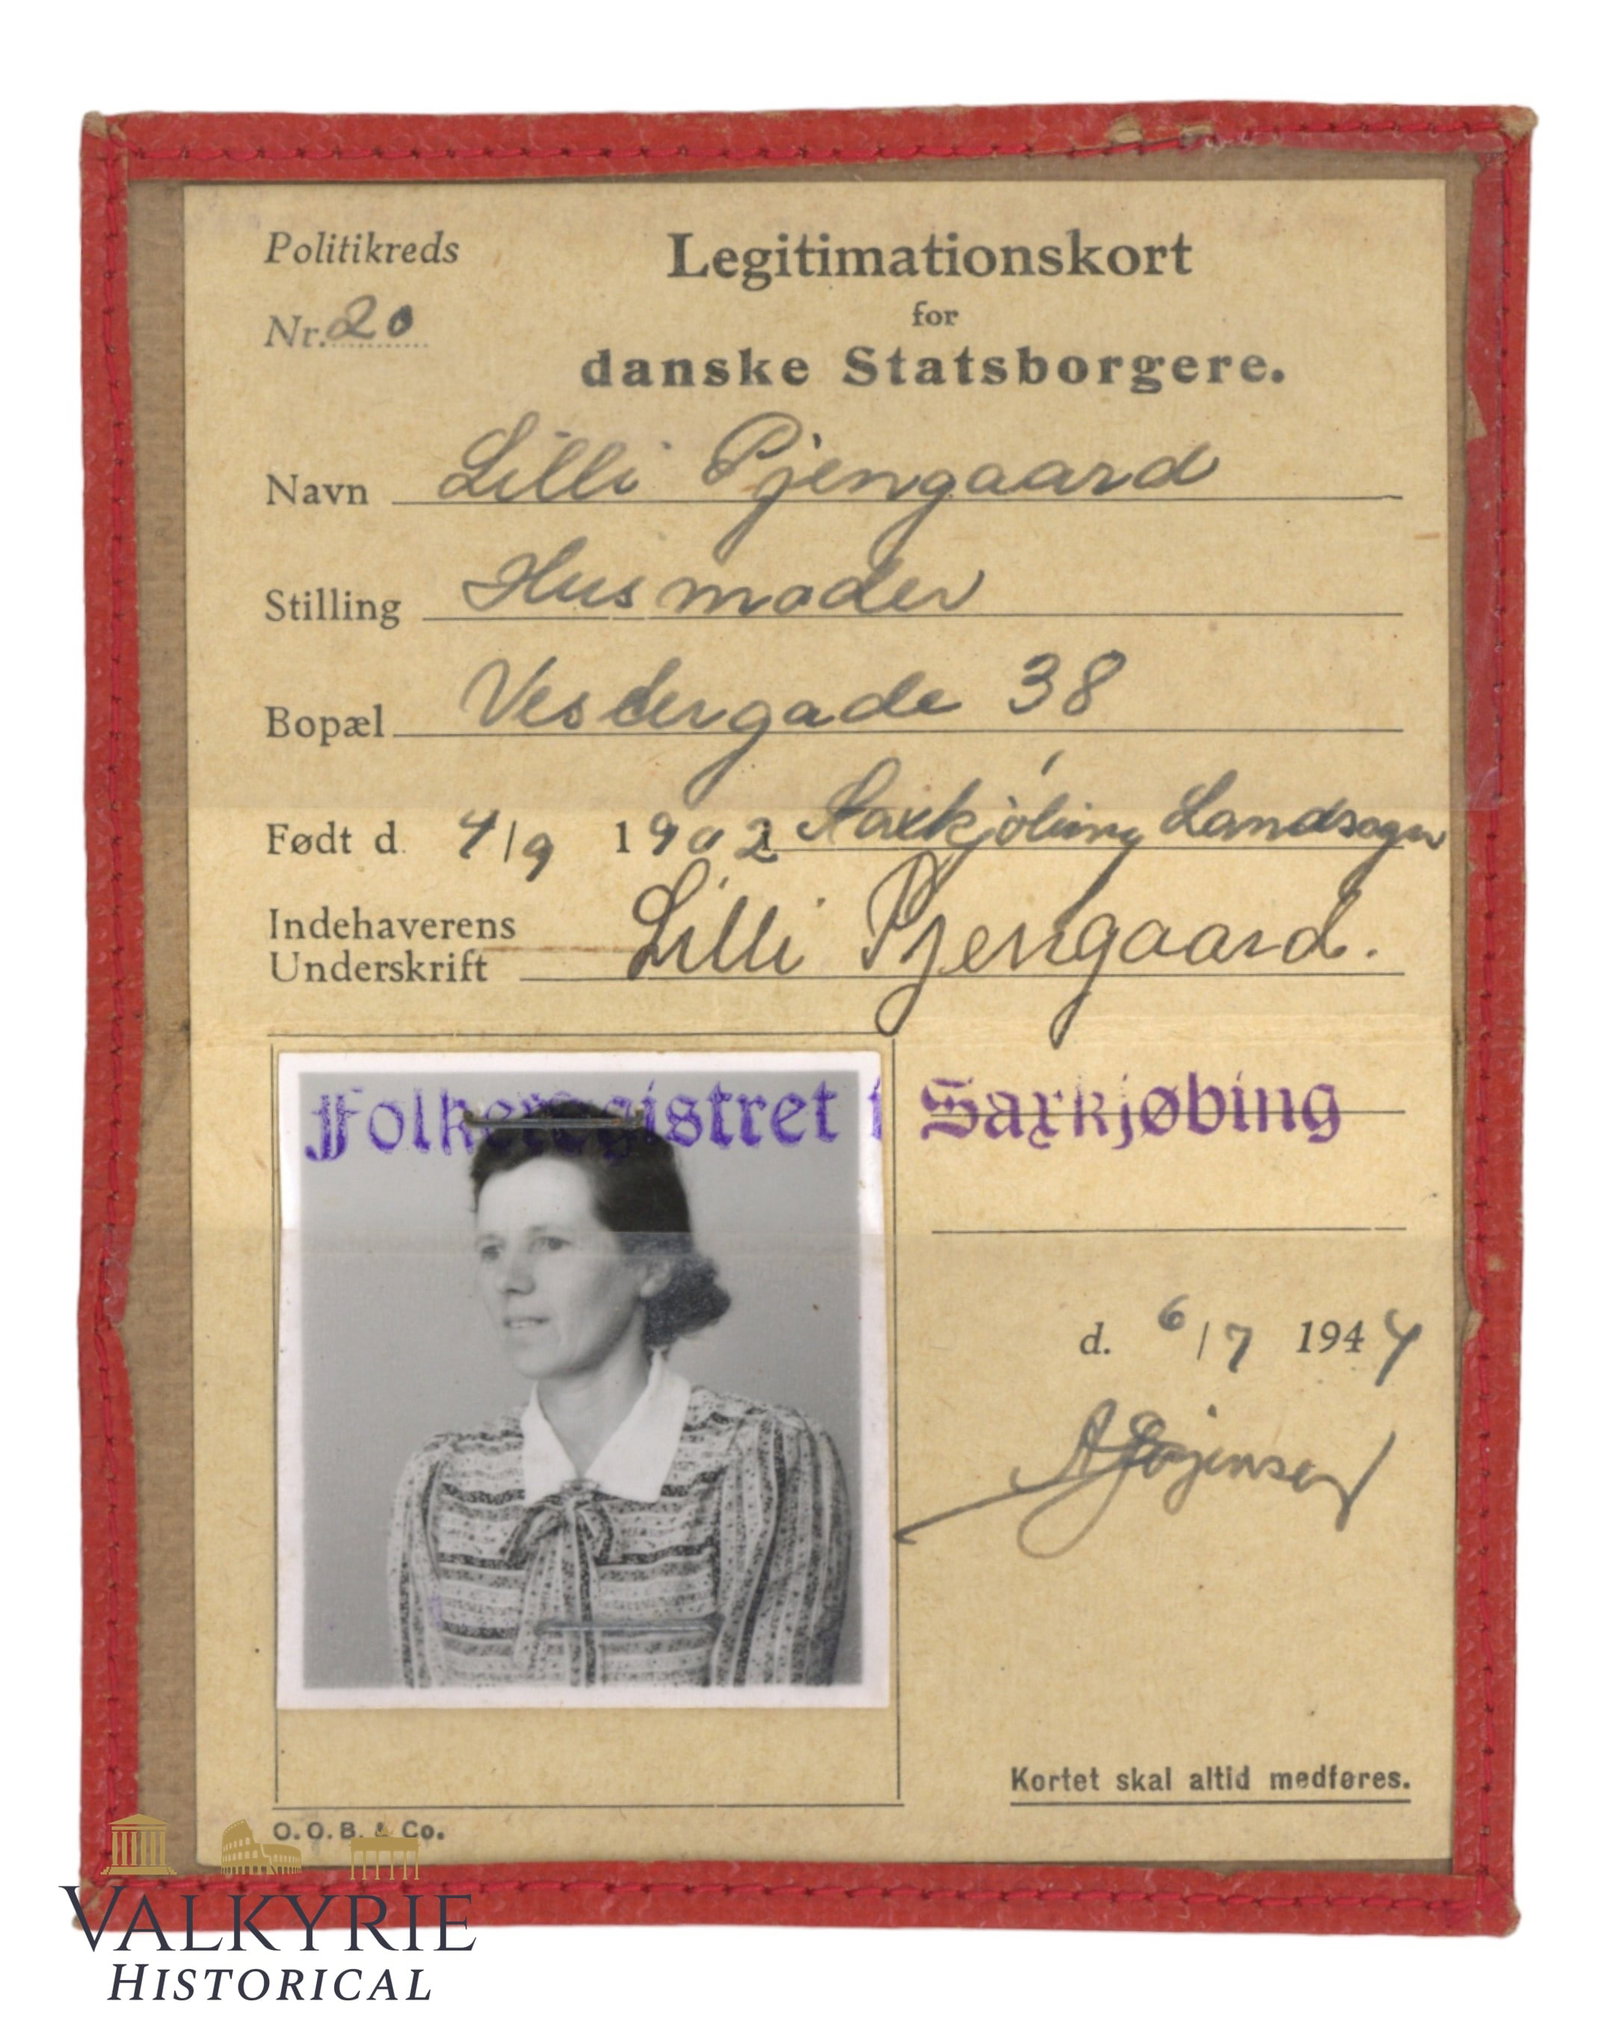 Politikreds
Nr. 20
Legitimationskort
for
danske Statsborgere.
Navn Lilli Pjengaard
Stilling Husmoder
Bopæl Vestergade 38
Født d. 4/9 1902 i Saxkjöbing Landsogn
Indehaverens
Underskrift Lilli Pjengaard.
Folkeregistret i Saxkjøbing
d. 6/7 1944
Kortet skal altid medføres.
O. O. B. & Co.
VALKYRIE
HISTORICAL